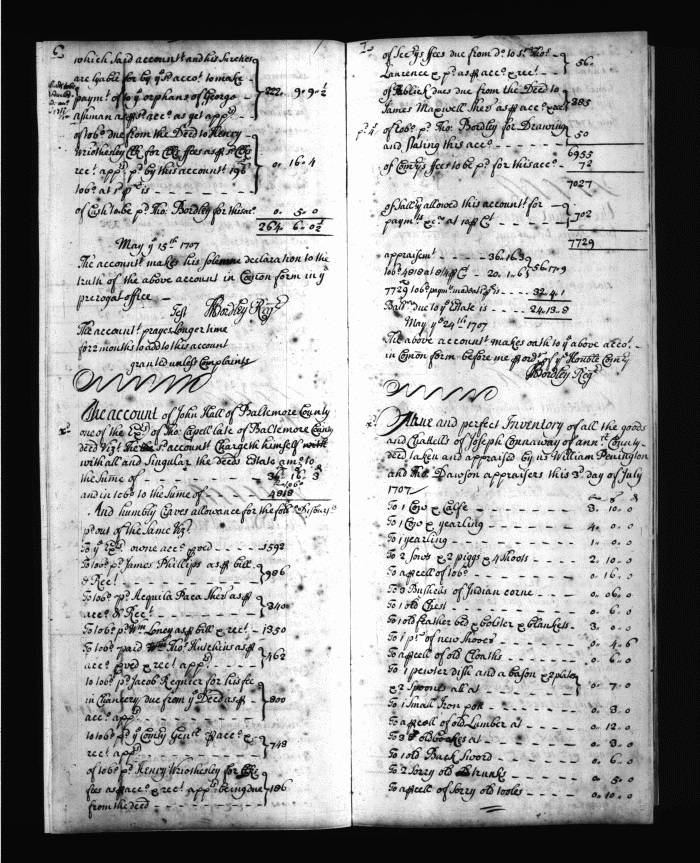 6
which said account and his sureties
are lyable for by ye sd accot. to make
paymt. of to ye orphans of George
Ashman as pr acct. as pr appd. 222. 9. 9½
of tobo. due from the Deed to Henry
Wriothesley Clk for Clk fees as pr Clk
rect. appd. pd. by this accountt. 196
tobo. at 1d pr is 0. 16. 4
of Cash to be pd. Tho: Bordley for this acct. 0. 5. 0
264. 6. 0½
May ye 15th 1707
The accountt. makes his solemne declaration to the
truth of the above account in Comon form in ye
prerogat office
Test TBordley Regr.
The accountt. prayes Longer time
for 2 months to add to this account
granted unless Complaints
The account of John Hall of Baltemore County
one of the Exrs. of Tho: Capell late of Baltemore County
deed Vizt. The sd. accountt. Chargeth himself
with all and Singular the deeds Estate amo. to
the sume of 36. 16. 3
and in tobo. to the sume of 4818
And humbly Craves allowance for the follo. Disburs
pd. out of the same Vizt.
To ye Exrs. owne acct. pved 1592
To tobo. pd. James Phillips as pr bill
& Rect. 986
To tobo. pd. Aequila Paca Sher as pr
acct. & Rect. 340
To tobo. pd. Wm. Loney as pr bill & rect. 1350
To tobo. paid Tho: Hutchins as pr
acct. pved & rect. appd. 462
to tobo. pd. Jacob Regnier for his fee
in Chancery due from ye Deed as pr
acct. appd. 800
to tobo. pd. ye County Gentl. pr acct. &
rect. appd. 748
of tobo. pd. Henry Wriothesley for
fees as pr acct. & rect. appd. being due
from the deed 186
7
of Secrys fees due from do. to Sr. Tho:
Laurence & pd. as pr acct. & rect. 56
of Publick dues due from the Deed to
James Maxwell Sher as pr acct. & rect. 385
of tobo. pd. Tho: Bordley for Drawing
and stating this acct. 50
6955
of Comrys fees to be pd. for this acct. 72
7027
of Sallry allowed this accountt. for
paymts. &c. at 10 pr Ct. 702
7729
appraismt. 36. 16. 3
tobo. 4818 at 8/4 pr C 20. 1. 6 56. 17. 9
7729 tobo. paymt. made at is 32. 4. 1
Ballce. due to ye Estate is 24. 13. 8
May ye 24th 1707
The above accountt. makes oath to ye above accot.
in Comon form before me pr ordr. of ye Honble Comry
TBordley Regr.
A true and perfect Inventory of all the goods
and Chattells of Joseph Connaway of annl. County
deed taken and appraised by us William Penington
and Tho: Dawson appraisers this 3d. day of July
1707
To 1 Cow & Calfe 3. 10. 0
To 1 Cow & yearling 4. 0. 0
To 1 yearling 1. 0. 0
To 2 Sows & 2 piggs & 4 Shoots 2. 10. 0
To a pcell of tobo. 0. 16. 0
To 3 Bushells of Indian corne 0. 06. 0
To 1 old Chest 0. 6. 0
To 1 old feather bed & bolster & blankett 3. 0. 0
To 1 pr. of new shooes 0. 4. 6
To a pcell of old Cloaths 0. 6. 0
To 1 pewter dish and a bason & 2 plates
& 2 spoones all at 0. 7. 0
To 1 small Iron pott 0. 3. 0
To a pcell of old Lumber at 0. 12. 0
To 3 old bookes at 0. 3. 0
To 1 old Back Sword 0. 6. 0
To 2 sorry old trunks 0. 5. 0
To a pcell of sorry old tooles 0. 10. 0